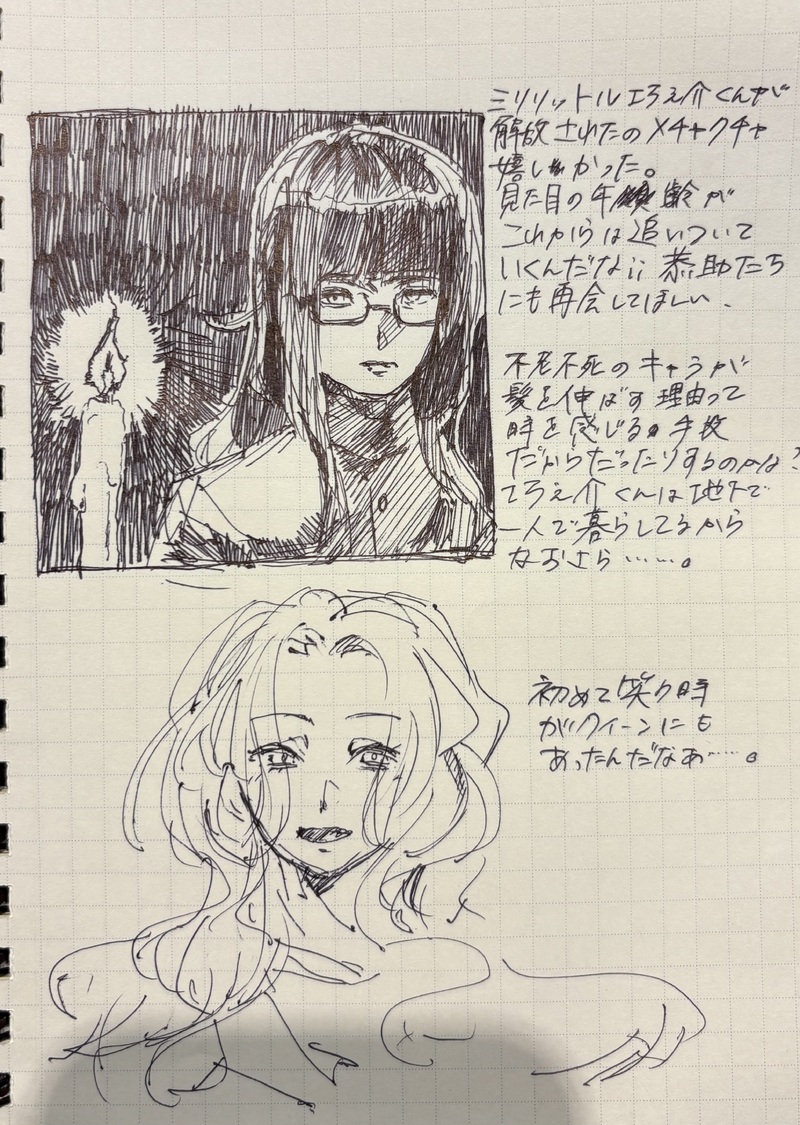 ミリリットルてろえ介くんが
解放されたのメチャクチャ
嬉しかった。
見た目の年齢が
これからは追いついて
いくんだな;; 恭助たち
にも再会してほしい、
不老不死のキャラが
髪を伸ばす理由って
時を感じる手段
だからだったりするのかな?
てろえ介くんは地下で
一人で暮らしてるから
なおさら……。
初めて笑う時
がクイーンにも
あったんだなあ……。